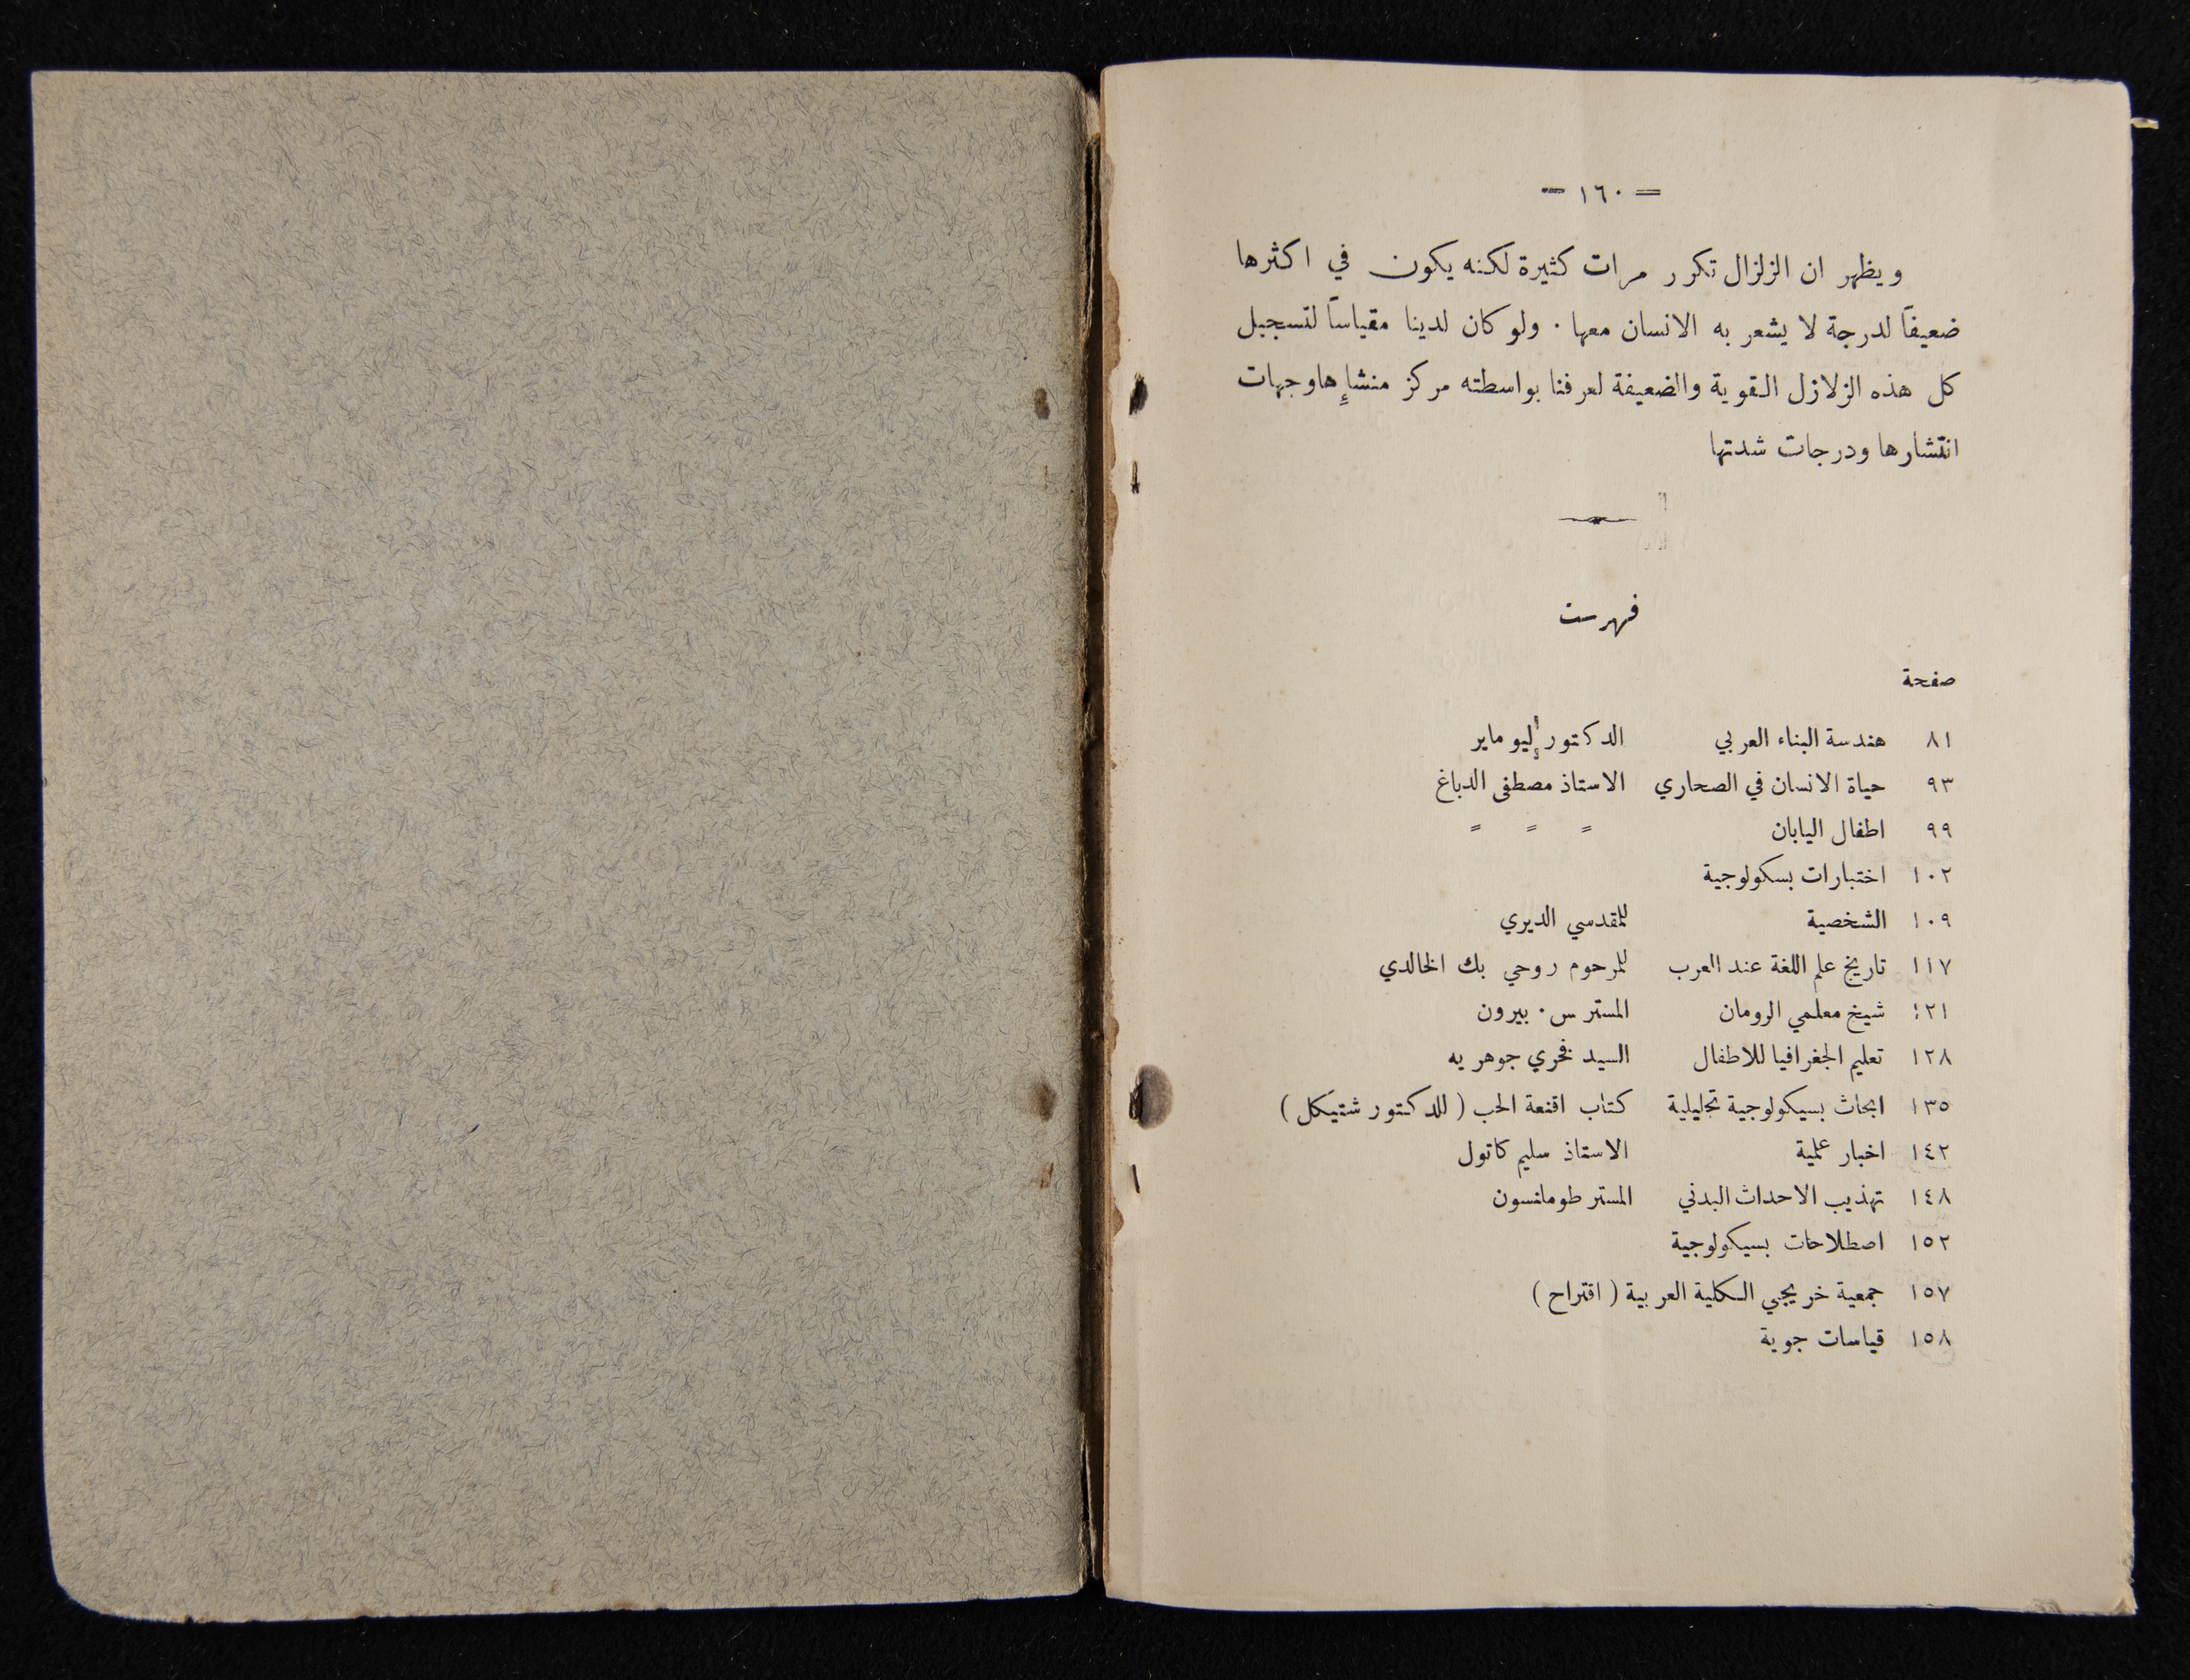 = ١٦٠ =
ويظهر ان الزلزال تكرر مرات كثيرة لكنه يكون في اكثرها
ضعيفاً لدرجة لا يشعر به الانسان معها . ولو كان لدينا مقياساً لتسجيل
كل هذه الزلازل القوية والضعيفة لعرفنا بواسطته مركز منشإِها وجهات
انتشارها ودرجات شدتها
فهرست
صفحة
٨١ هندسة البناء العربي الدكتور إليو ماير
٩٣ حياة الانسان في الصحاري الاستاذ مصطفى الدباغ
٩٩ اطفال اليابان = = =
١٠٢ اختبارات بسكولوجية
١٠٩ الشخصية للمقدسي الديري
١١٧ تاريخ علم اللغة عند العرب للمرحوم روحي بك الخالدي
١٢١ شيخ معلمي الرومان المستر س . بيرون
١٢٨ تعليم الجغرافيا للاطفال السيد فخري جوهريه
١٣٥ ابحاث بسيكولوجية تحليلية كتاب اقنعة الحب ( للدكتور شتيكل )
١٤٢ اخبار علمية الاستاذ سليم كاتول
١٤٨ تهذيب الاحداث البدني المستر طومانسون
١٥٢ اصطلاحات بسيكولوجية
١٥٧ جمعية خريجي الكلية العربية ( اقتراح )
١٥٨ قياسات جوية